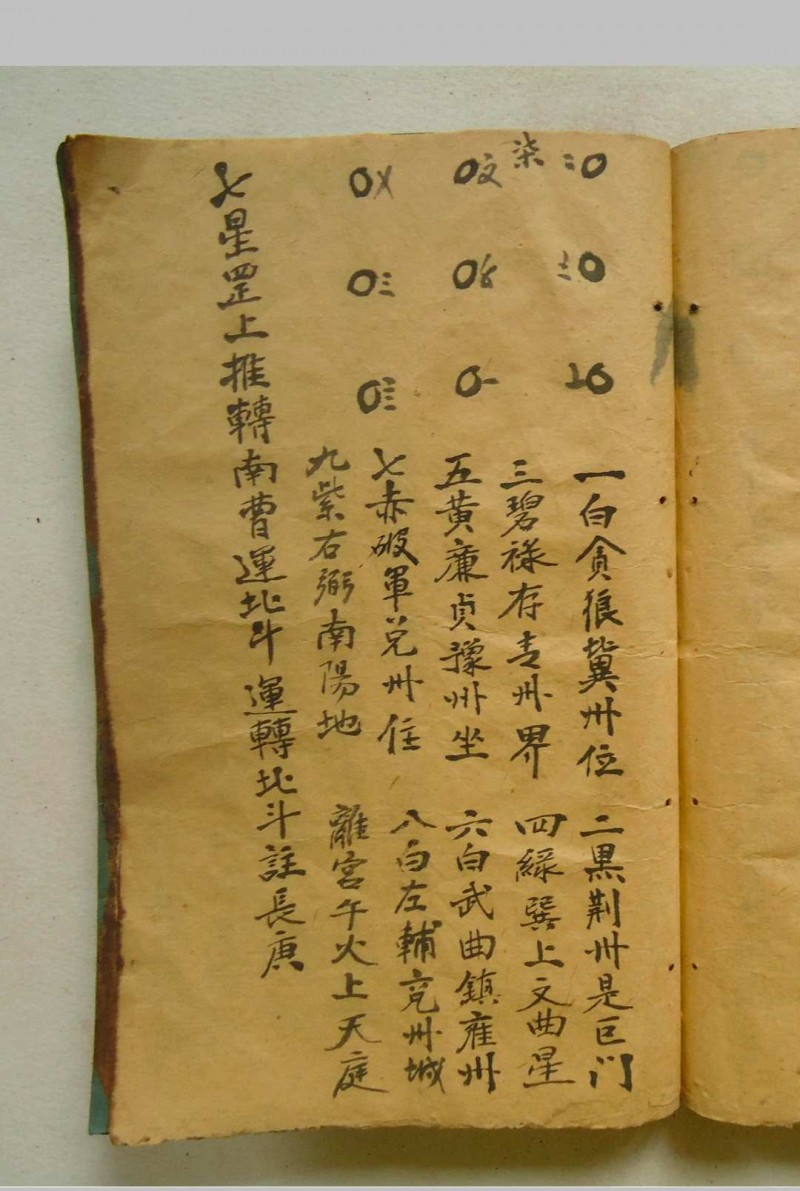 柒
一白貪狼冀州位 二黑荆州是巨门
三碧禄存青州界 四緑巽上文曲星
五黃廉貞豫州坐 六白武曲鎮雍州
七赤破軍兌州住 八白左輔兗州城
九紫右弼南陽地 離宮午火上天庭
七星罡上推轉南曹運北斗運轉北斗註長庚